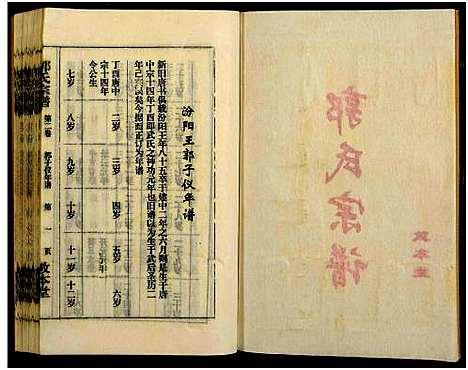 郭氏宗谱
敦本堂
汾阳王郭子仪年谱
新旧唐书俱载汾阳王年八十五卒于建中二年之六月则是生于唐
中宗十四年丁酉即武氏之神功元年也旧谱以为生于武后圣历二
年己亥误矣今据而正订为年谱
丁酉唐中
宗十四年
令公生
二岁
三岁
四岁
五岁
六岁
七岁
八岁
九岁
十岁
十一岁
十二岁
郭氏宗谱
第二卷
郭子仪年谱
第一页
敦本堂